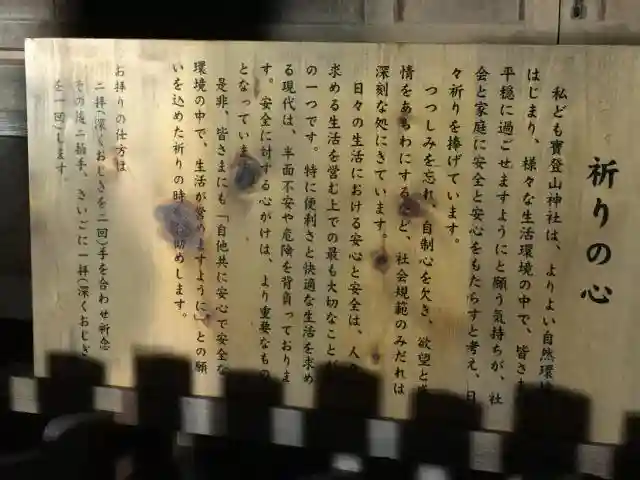 祈りの心
私ども寳登山神社は、よりよい自然環
はじまり、様々な生活環境の中で、皆さ
平穏に過ごせますようにと願う気持ちが、社
会と家庭に安全と安心をもたらすと考え、日
々祈りを捧げています。
つつしみを忘れ、自制心を欠き、欲望と
情をあらわにする など、社会規範のみだれは
深刻な処にきています。
日々の生活における安心と安全は、人
求める生活を営む上での最も大切なこと
の一つです。特に便利さと快適な生活を求め
る現代は、半面不安や危険を背負っておりま
す。安全に対する心がけは、より重要なもの
となっていま
是非、皆さまにも「自他共に安心で安全な
環境の中で、生活が営めますように」との願
いを込めた祈りの時 お勧めします。
お拝りの仕方は
二拝(深くおじぎを二回)手を合わせ祈念
その後二拍手、さいごに一拝(深くおじぎ
を一回)します